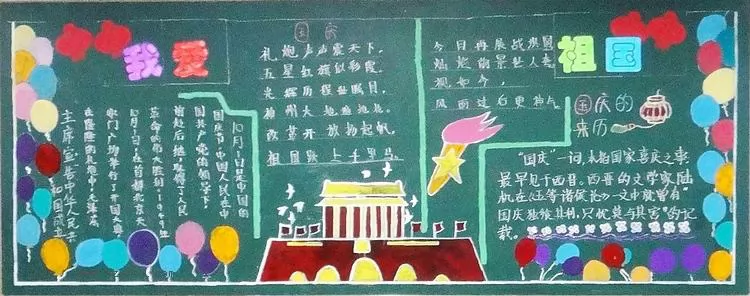 我爱
祖国
国庆
礼炮声声震天下，
五星红旗似彩霞。
光辉历程世瞩目，
神州大地
改革开放扬起帆，
祖国踏上千里马。
今日再展战旗图
灿烂前景世人
现如今，
风雨过后更神气
国庆的
来历
10月1日是中国的
国庆节，中国人民在中
国共产党的领导下，
前赴后继，取得了人民
革命的伟大胜利，1949年
10月1日，在首都北京天
安门广场举行了开国大典，
在隆隆的礼炮中，毛泽东
主席宣告中华人民共
和国成立
“国庆”一词，本指国家喜庆之事
最早见于西晋。西晋的文学家陆
机在《五等诸侯论》一文中就曾有“
国庆独飨其利，只忧莫与其害”的记
载。